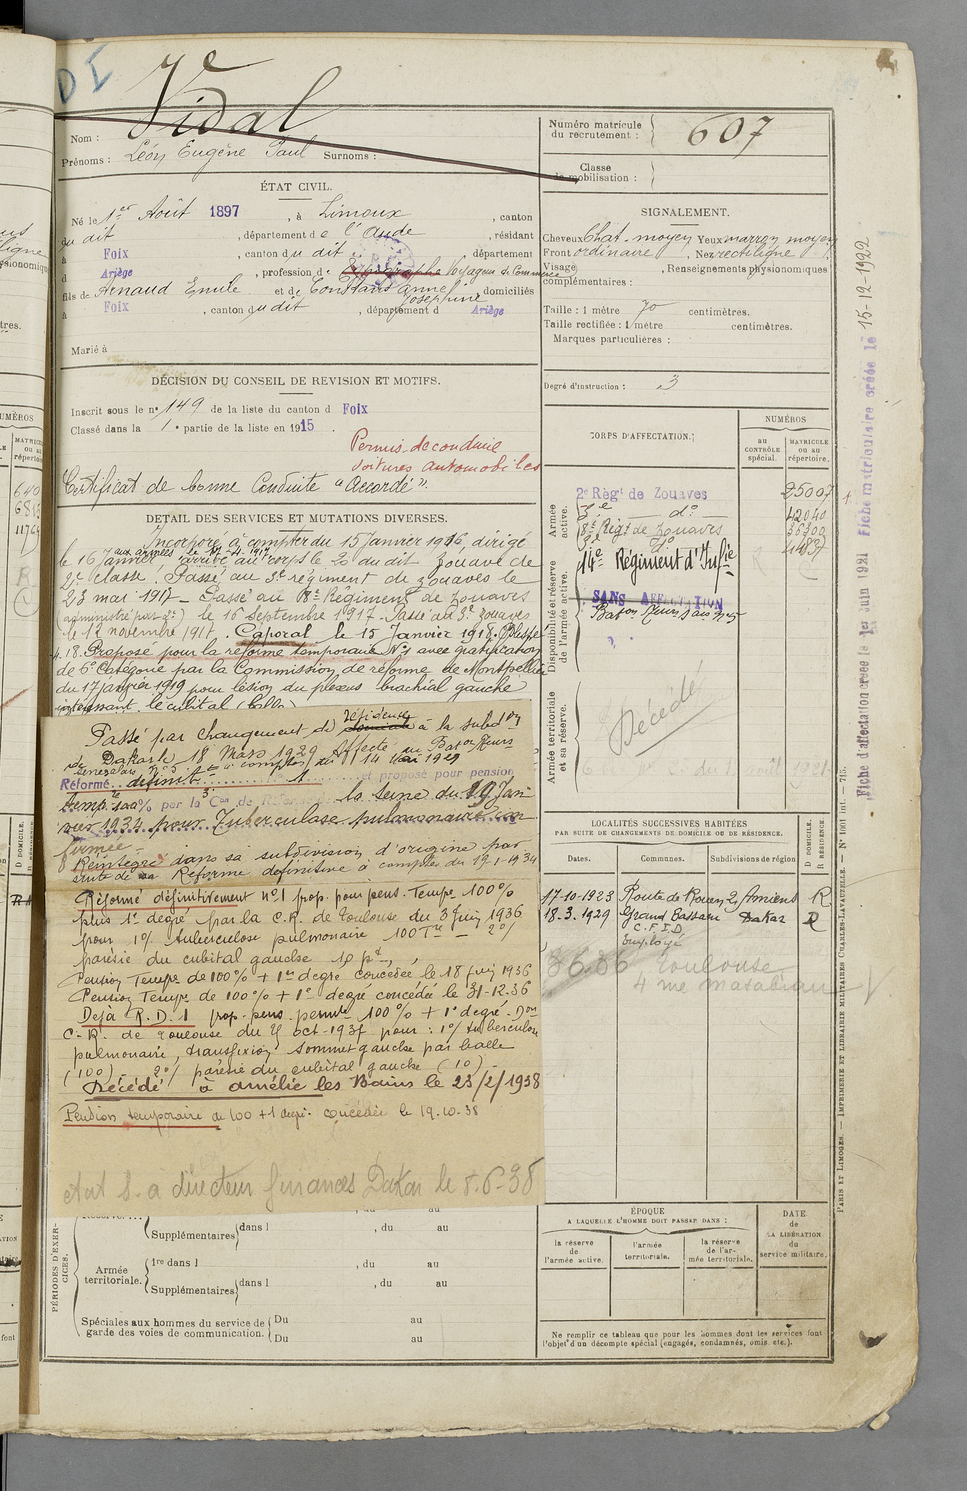 DI
7e
Vidal
Nom :
Prénoms : Léon Eugène Paul Surnoms :
Numéro matricule du recrutement : 607
Classe de mobilisation :
ÉTAT CIVIL.
Né le 1er Août 1897, à Limoux, canton
du dit, département de l'Aude, résidant
à Foix, canton du dit, département
d Ariège, profession de Voyageur de Commerce
fils de Arnaud Emile et de Constans Anne Joséphine domiciliés
à Foix, canton du dit, département d Ariège
Marié à
SIGNALEMENT.
Cheveux Chat. moyen Yeux marron moyen
Front ordinaire, Nez rectiligne
Visage, Renseignements physionomiques
complémentaires :
Taille : 1 mètre 70 centimètres.
Taille rectifiée : 1 mètre centimètres.
Marques particulières :
Degré d'instruction : 3
DÉCISION DU CONSEIL DE REVISION ET MOTIFS.
Inscrit sous le n° 149 de la liste du canton d Foix
Classé dans la 1e partie de la liste en 1915.
Permis de conduire
voitures automobiles
Certificat de bonne Conduite "Accordé".
DETAIL DES SERVICES ET MUTATIONS DIVERSES.
Incorporé à compter du 15 Janvier 1916, dirigé
aux armées le 17-4-1917
le 16 Janvier arrivé au corps le 20 du dit Zouave de
2e classe. Passé au 3e régiment de zouaves le
23 mai 1917 - Passé au 8e Régiment de Zouaves
le 16 septembre 1917. Passé au 3e Zouaves
le 11 novembre 1917. Caporal le 15 Janvier 1918. Blessé
4.18. Proposé pour la réforme temporaire N°1 avec gratification
de 6e Catégorie par la Commission de réforme de Montpellier
du 17 janvier 1919 pour lésion du plexus brachial gauche
intéressant le cubital
Passé par changement de résidence à la subdon
de Dakar le 18 Mars 1929 Affecté au Baton Tleurs
Sénégalais n° 5 à compter du 14 Mai 1929
Réformé définitt 1 et proposé pour pension
temp. 100% par la 3e Con de Réforme de la Seine du 19 Jan-
vier 1934 pour Tuberculose pulmonaire con
firmée -
Réintégré dans sa subdivision d'origine par
suite de sa Réforme définitive à compter du 19-1-1934
Réformé définitivement n°1 prop. pour pens. Tempe 100%
plus 1er degré par la C.R. de Toulouse du 3 Juin 1936
pour 1°/ tuberculose pulmonaire 100 Tre - 2°/
parésie du cubital gauche 10 p.
Pension Tempe de 100% + 1er degré concédée le 18 juin 1936
Pension Tempe de 100% + 1er degré concédée le 31-12-36
Déjà R.D.1 prop. pens. permte 100% + 1er degré. Don
C.R. de Toulouse du oct. 1937 pour : 1°/ tuberculose
pulmonaire, transfixion sommet gauche par balle
(100) - 2°/ parésie du cubital gauche (10)
Décédé à Amélie les Bains le 23/2/1938
Pension temporaire de 100 + 1 degré. concédée le 19-10-38
S. à directeur finances Dakar le 8.6-38
CORPS D'AFFECTATION.
NUMÉROS
au CONTRÔLE spécial.
MATRICULE ou au répertoire.
Armée active.
2e Régt de Zouaves 25007
3e do 42040
8e Régt de Zouaves 35300
3e do
Disponibilité et réserve de l'armée active.
14e Régiment d'Infie
SANS AFFECTATION
Baton Tleurs Sais n°5
Armée territoriale et sa réserve.
Décédé
août 1921
LOCALITÉS SUCCESSIVES HABITÉES
PAR SUITE DE CHANGEMENTS DE DOMICILE OU DE RÉSIDENCE.
Dates. Communes. Subdivisions de région
D DOMICILE. R RÉSIDENCE.
17-10-1923 Route de Rouen 24 Amiens R
18.3.1929 Grand Bassam Dakar R
C.F.I.D.
Employé
3636 Toulouse
4 rue Matabiau
ÉPOQUE
A LAQUELLE L'HOMME DOIT PASSER DANS :
la réserve de l'armée active.
l'armée territoriale.
la réserve de l'armée territoriale.
DATE de LA LIBÉRATION du service militaire.
Ne remplir ce tableau que pour les hommes dont les services font
l'objet d'un décompte spécial (engagés, condamnés, omis, etc.).
PÉRIODES D'EXERCICES.
Supplémentaires dans l , du au
Armée territoriale.
1re dans l , du au
Supplémentaires dans l , du au
Spéciales aux hommes du service de
garde des voies de communication.
Du au
Du au
Fiche d'affectation créée le 1er Juin 1921 Fiche matriculaire créée le 15-12-1922
PARIS ET LIMOGES. — IMPRIMERIE ET LIBRAIRIE MILITAIRES CHARLES-LAVAUZELLE. — N° 1001 int. — 715.